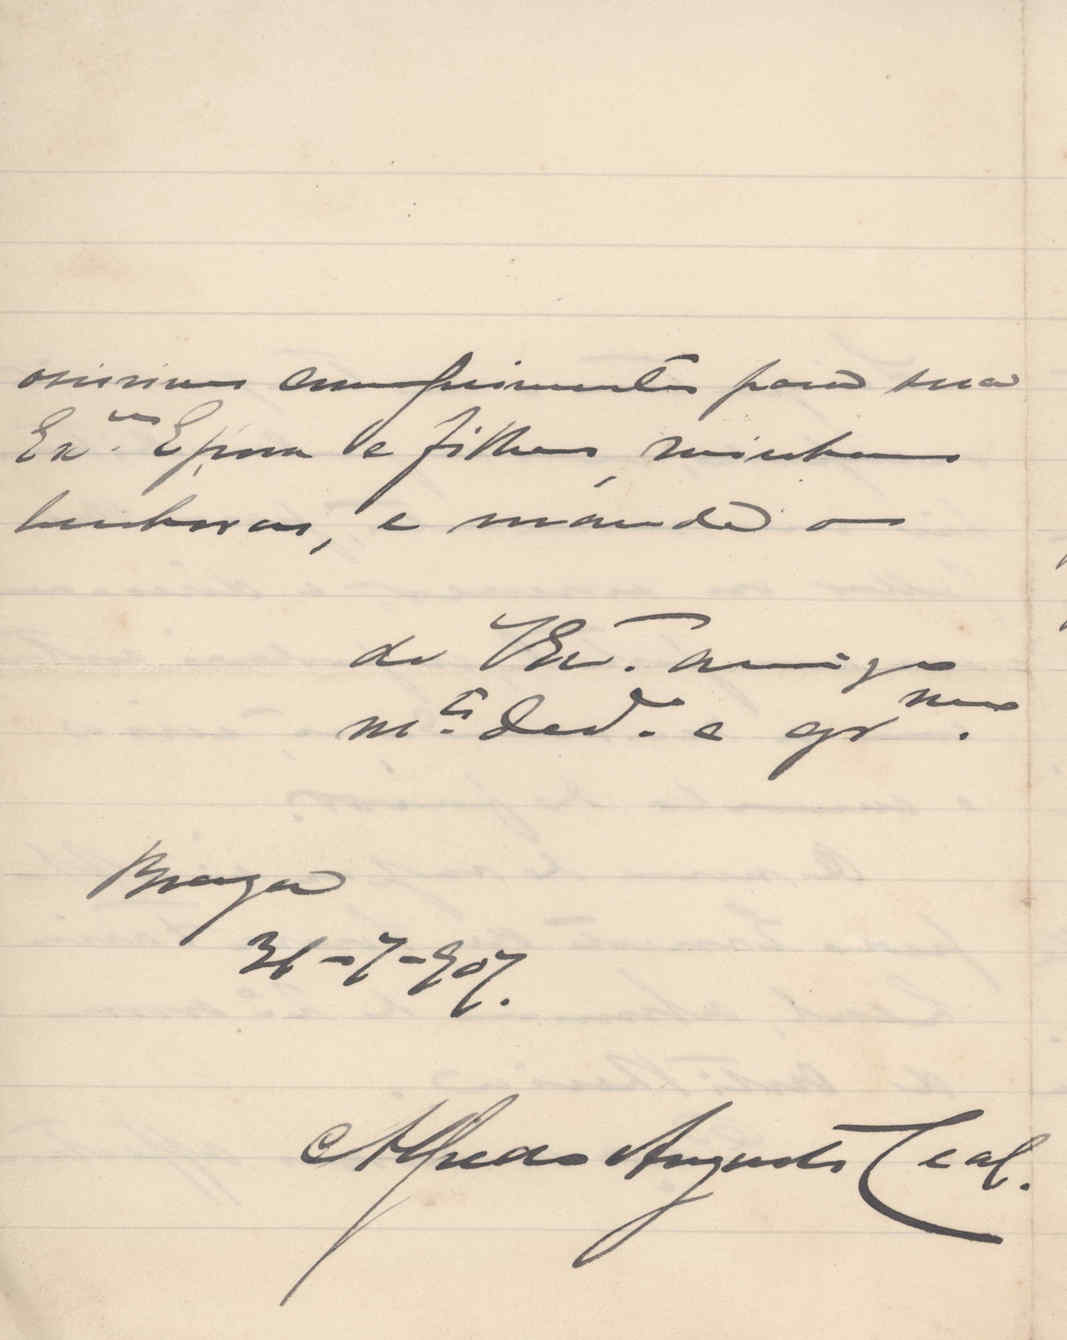 cumprimentos para sua
Ex.ma Espoza e filhos, minhas
senhoras, e mande o
de VEx. amigo
m.to ded.o e gr
Braga
31-7-907.
Alfredo Augusto Leal.